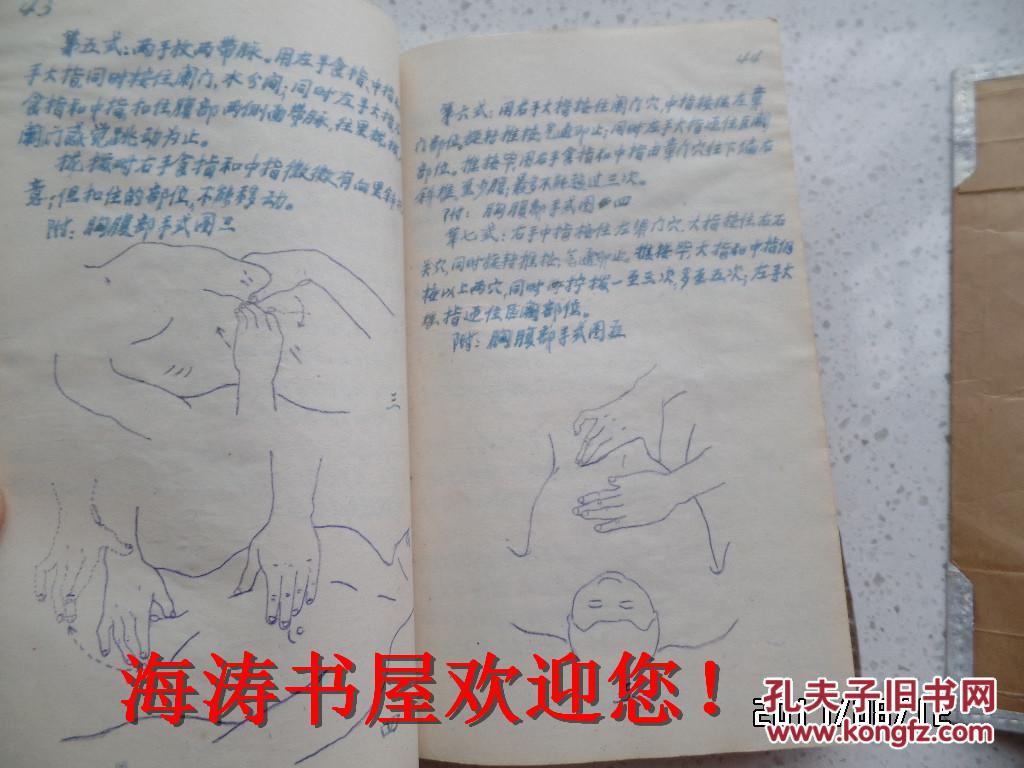 43
第五式：两手放两带脉。用左手食指、中指
手大指同时按住阑门，水分阁；同时左手大指
食指和中指扣住腹部两侧面带脉，往里拢拨，
阑门感觉跳动为止。
拢拨时右手食指和中指微微有向里斜
意；但扣住的部位，不能移动。
附：胸腹部手式图三
三
四
44
第六式：用右手大指按住阑门穴，中指按住左章
门部位，旋转推按，气通即止；同时左手大指迎住巨阙
部位。推按毕，用右手食指和中指由章门穴往下偏右
斜推，至少腹，最多不能超过三次。
附：胸腹部手式图四
第七式：右手中指按住左梁门穴，大指按住右石
关穴，同时旋转推按，气通即止。推按毕，大指和中指仍
按以上两穴，同时两拧拨一至三次，多至五次；左手大
指迎住巨阙部位。
附：胸腹部手式图五
五
海涛书屋欢迎您！
孔夫子旧书网
www.kongfz.com